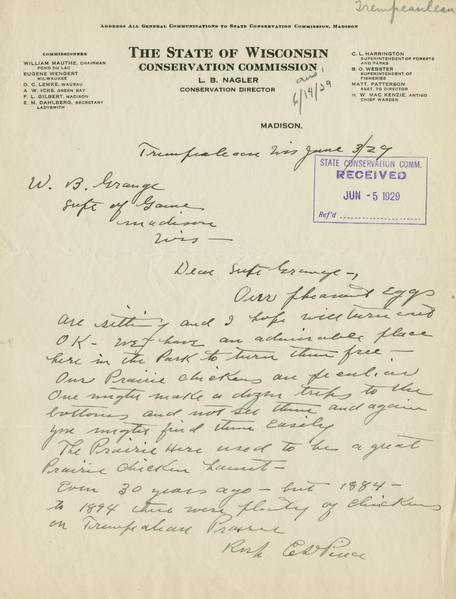 Trempealeau
ADDRESS ALL GENERAL COMMUNICATIONS TO STATE CONSERVATION COMMISSION, MADISON
COMMISSIONERS
WILLIAM MAUTHE, CHAIRMAN
FOND DU LAC
EUGENE WENGERT
MILWAUKEE
O. C. LEMKE, WAUSAU
A. W. ICKS, GREEN BAY
F. L. GILBERT, MADISON
E. M. DAHLBERG, SECRETARY
LADYSMITH
THE STATE OF WISCONSIN
CONSERVATION COMMISSION
L. B. NAGLER
CONSERVATION DIRECTOR
MADISON,
C. L. HARRINGTON
SUPERINTENDENT OF FORESTS
AND PARKS
B. O. WEBSTER
SUPERINTENDENT OF
FISHERIES
MATT. PATTERSON
ASST. TO DIRECTOR
H. W. MAC KENZIE, ANTIGO
CHIEF WARDEN
ans!
6/14/29
Trempealeau Wis June 3/29
STATE CONSERVATION COMM.
RECEIVED
JUN -5 1929
Ref'd
W. B. Grange
Supt of Game
Madison
Wis -
Dear Supt Grange -,
Our pheasant Eggs
are sitting and I hope will turn out
OK - We have an admirable place
here in the Park to turn them free -
Our Prairie chickens are peculiar
One might make a dozen trips to the
bottoms and not see them and again
you might find them Easily
The Prairie Here used to be a great
Prairie chicken haunt -
Even 30 years ago - but 1884 -
to 1894 there were plenty of chickens
on Trempealeau Prairie